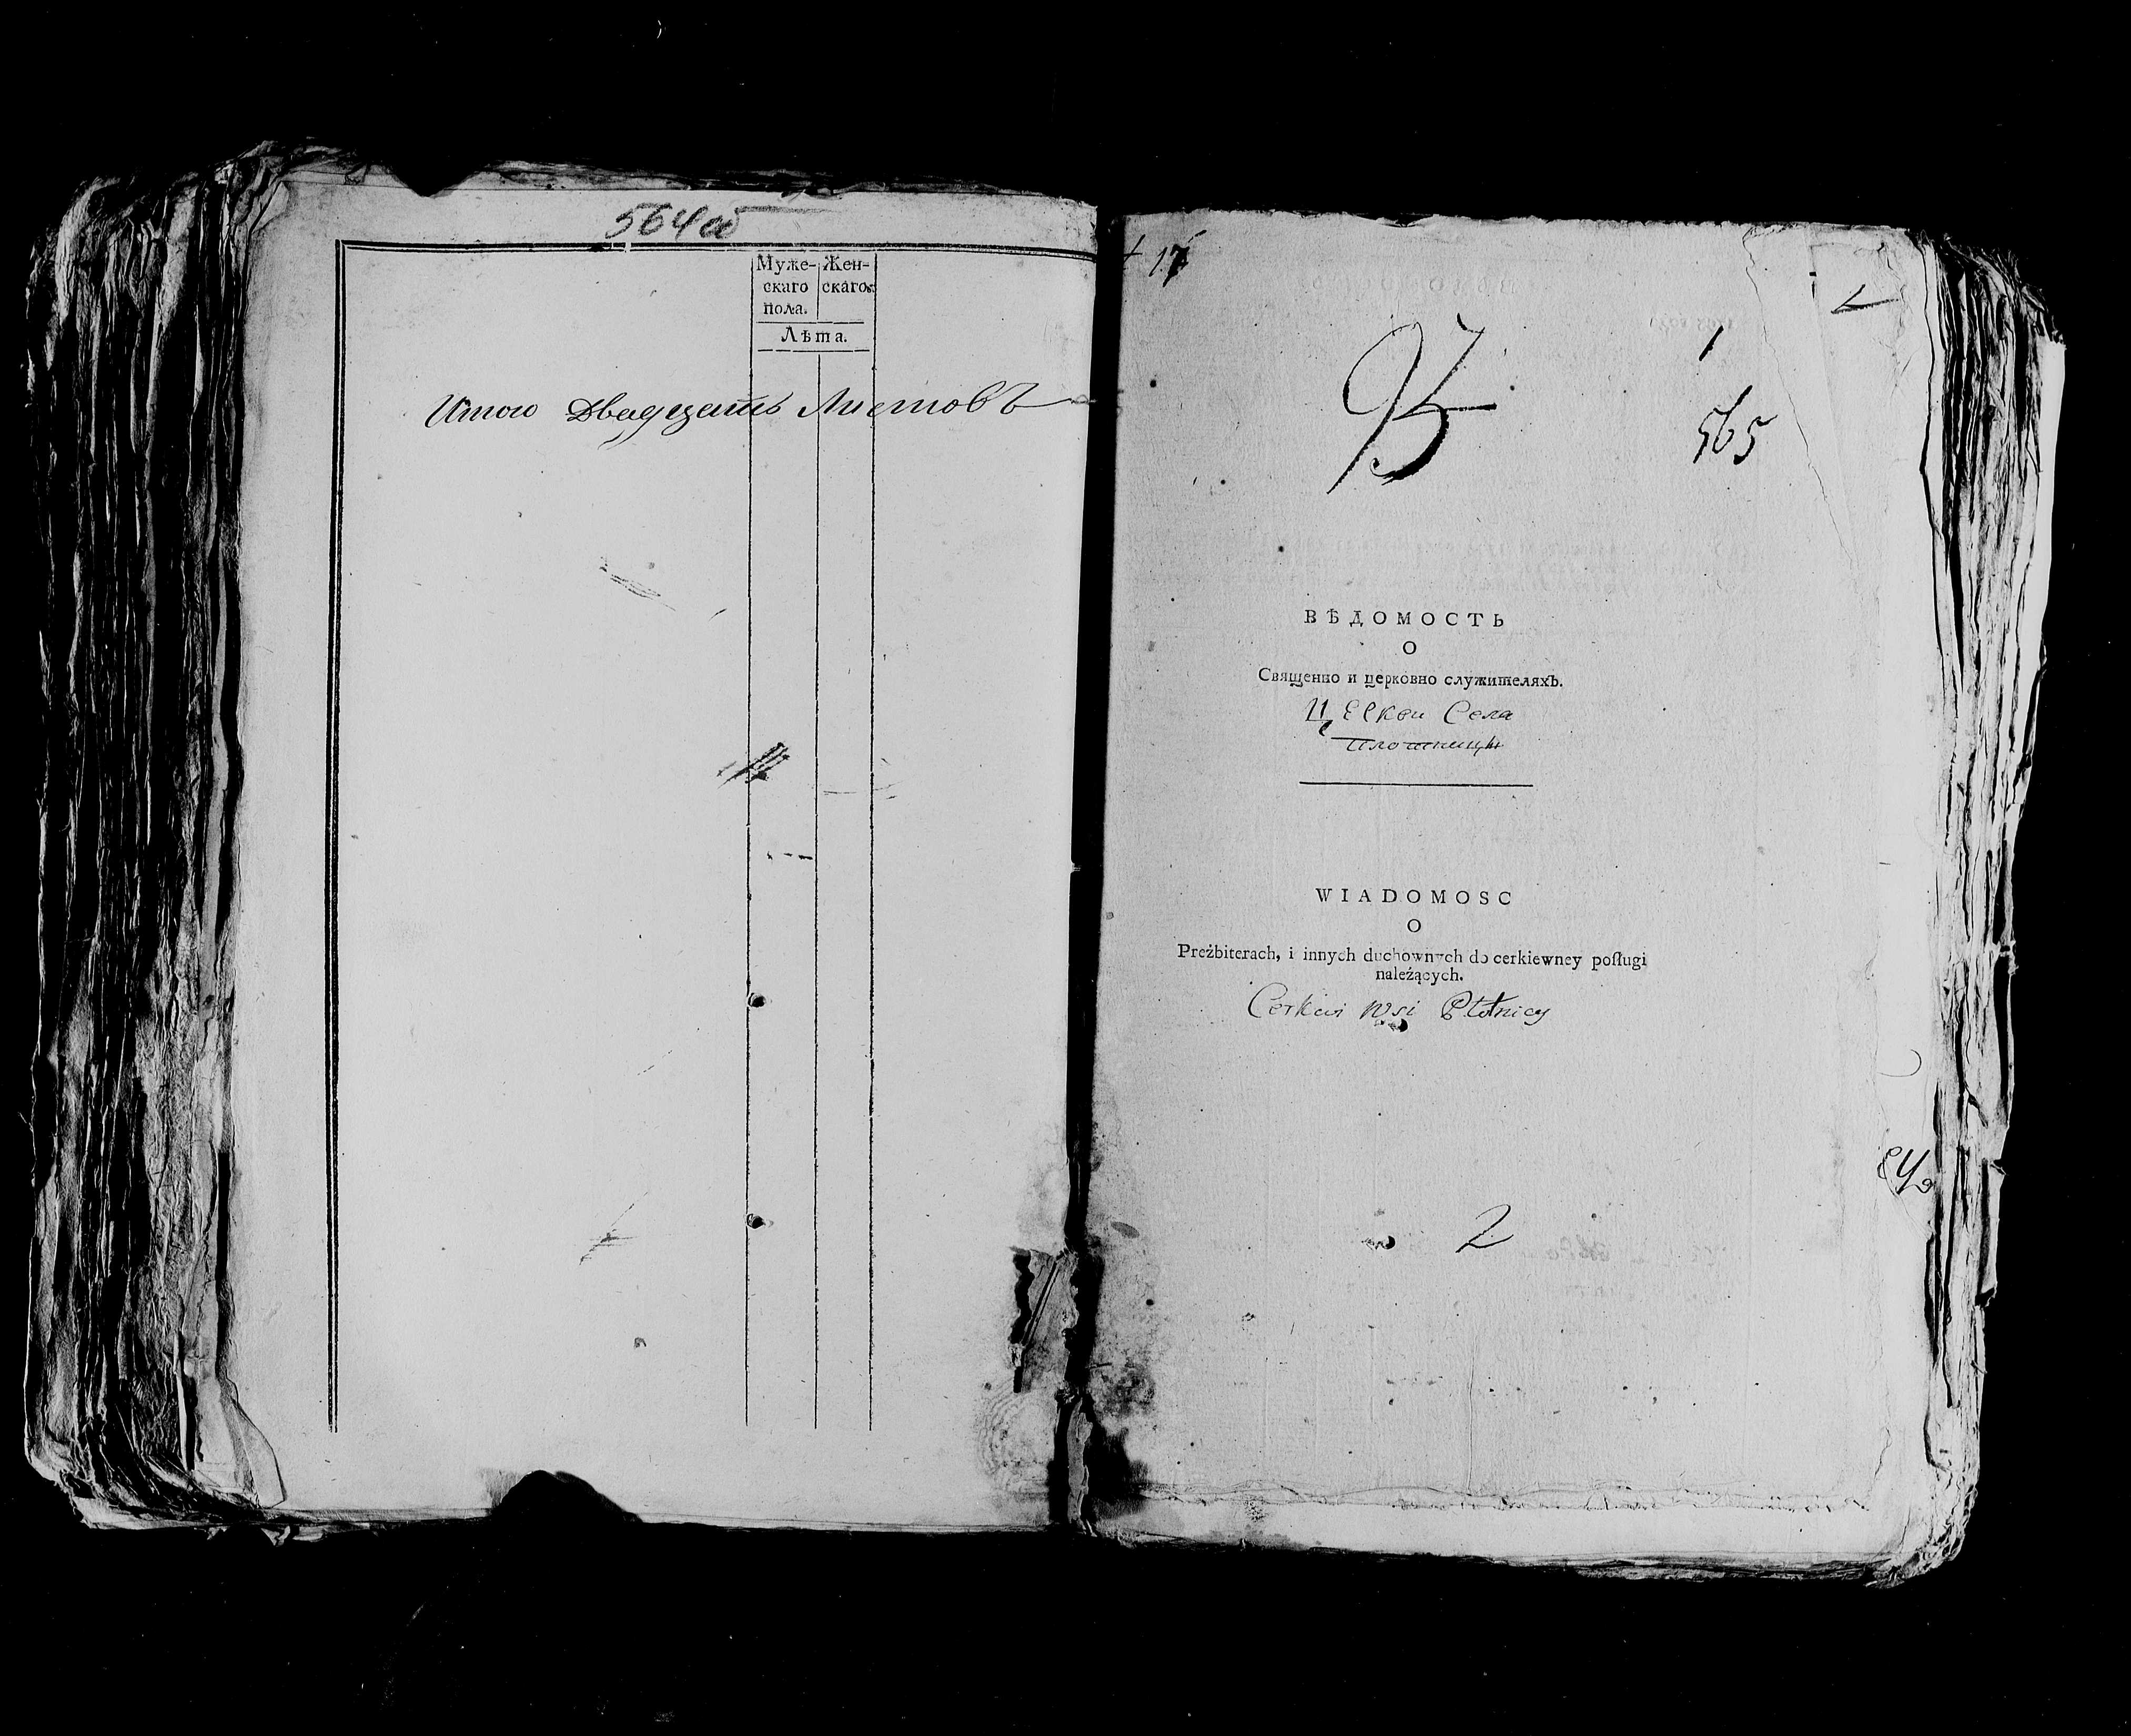 564об
Муже- Жен-
скаго скаго
пола.
Лѣта.
Итого Двадцать Листовъ
17
1
565
ВѢДОМОСТЬ
О
Священно и церковно служителяхъ.
Церкви Села
Плотницы
WIADOMOSC
O
Preźbiterach, i innych duchownych do cerkiewney poſługi
należących.
Cerkwi wsi Płotnicy
2